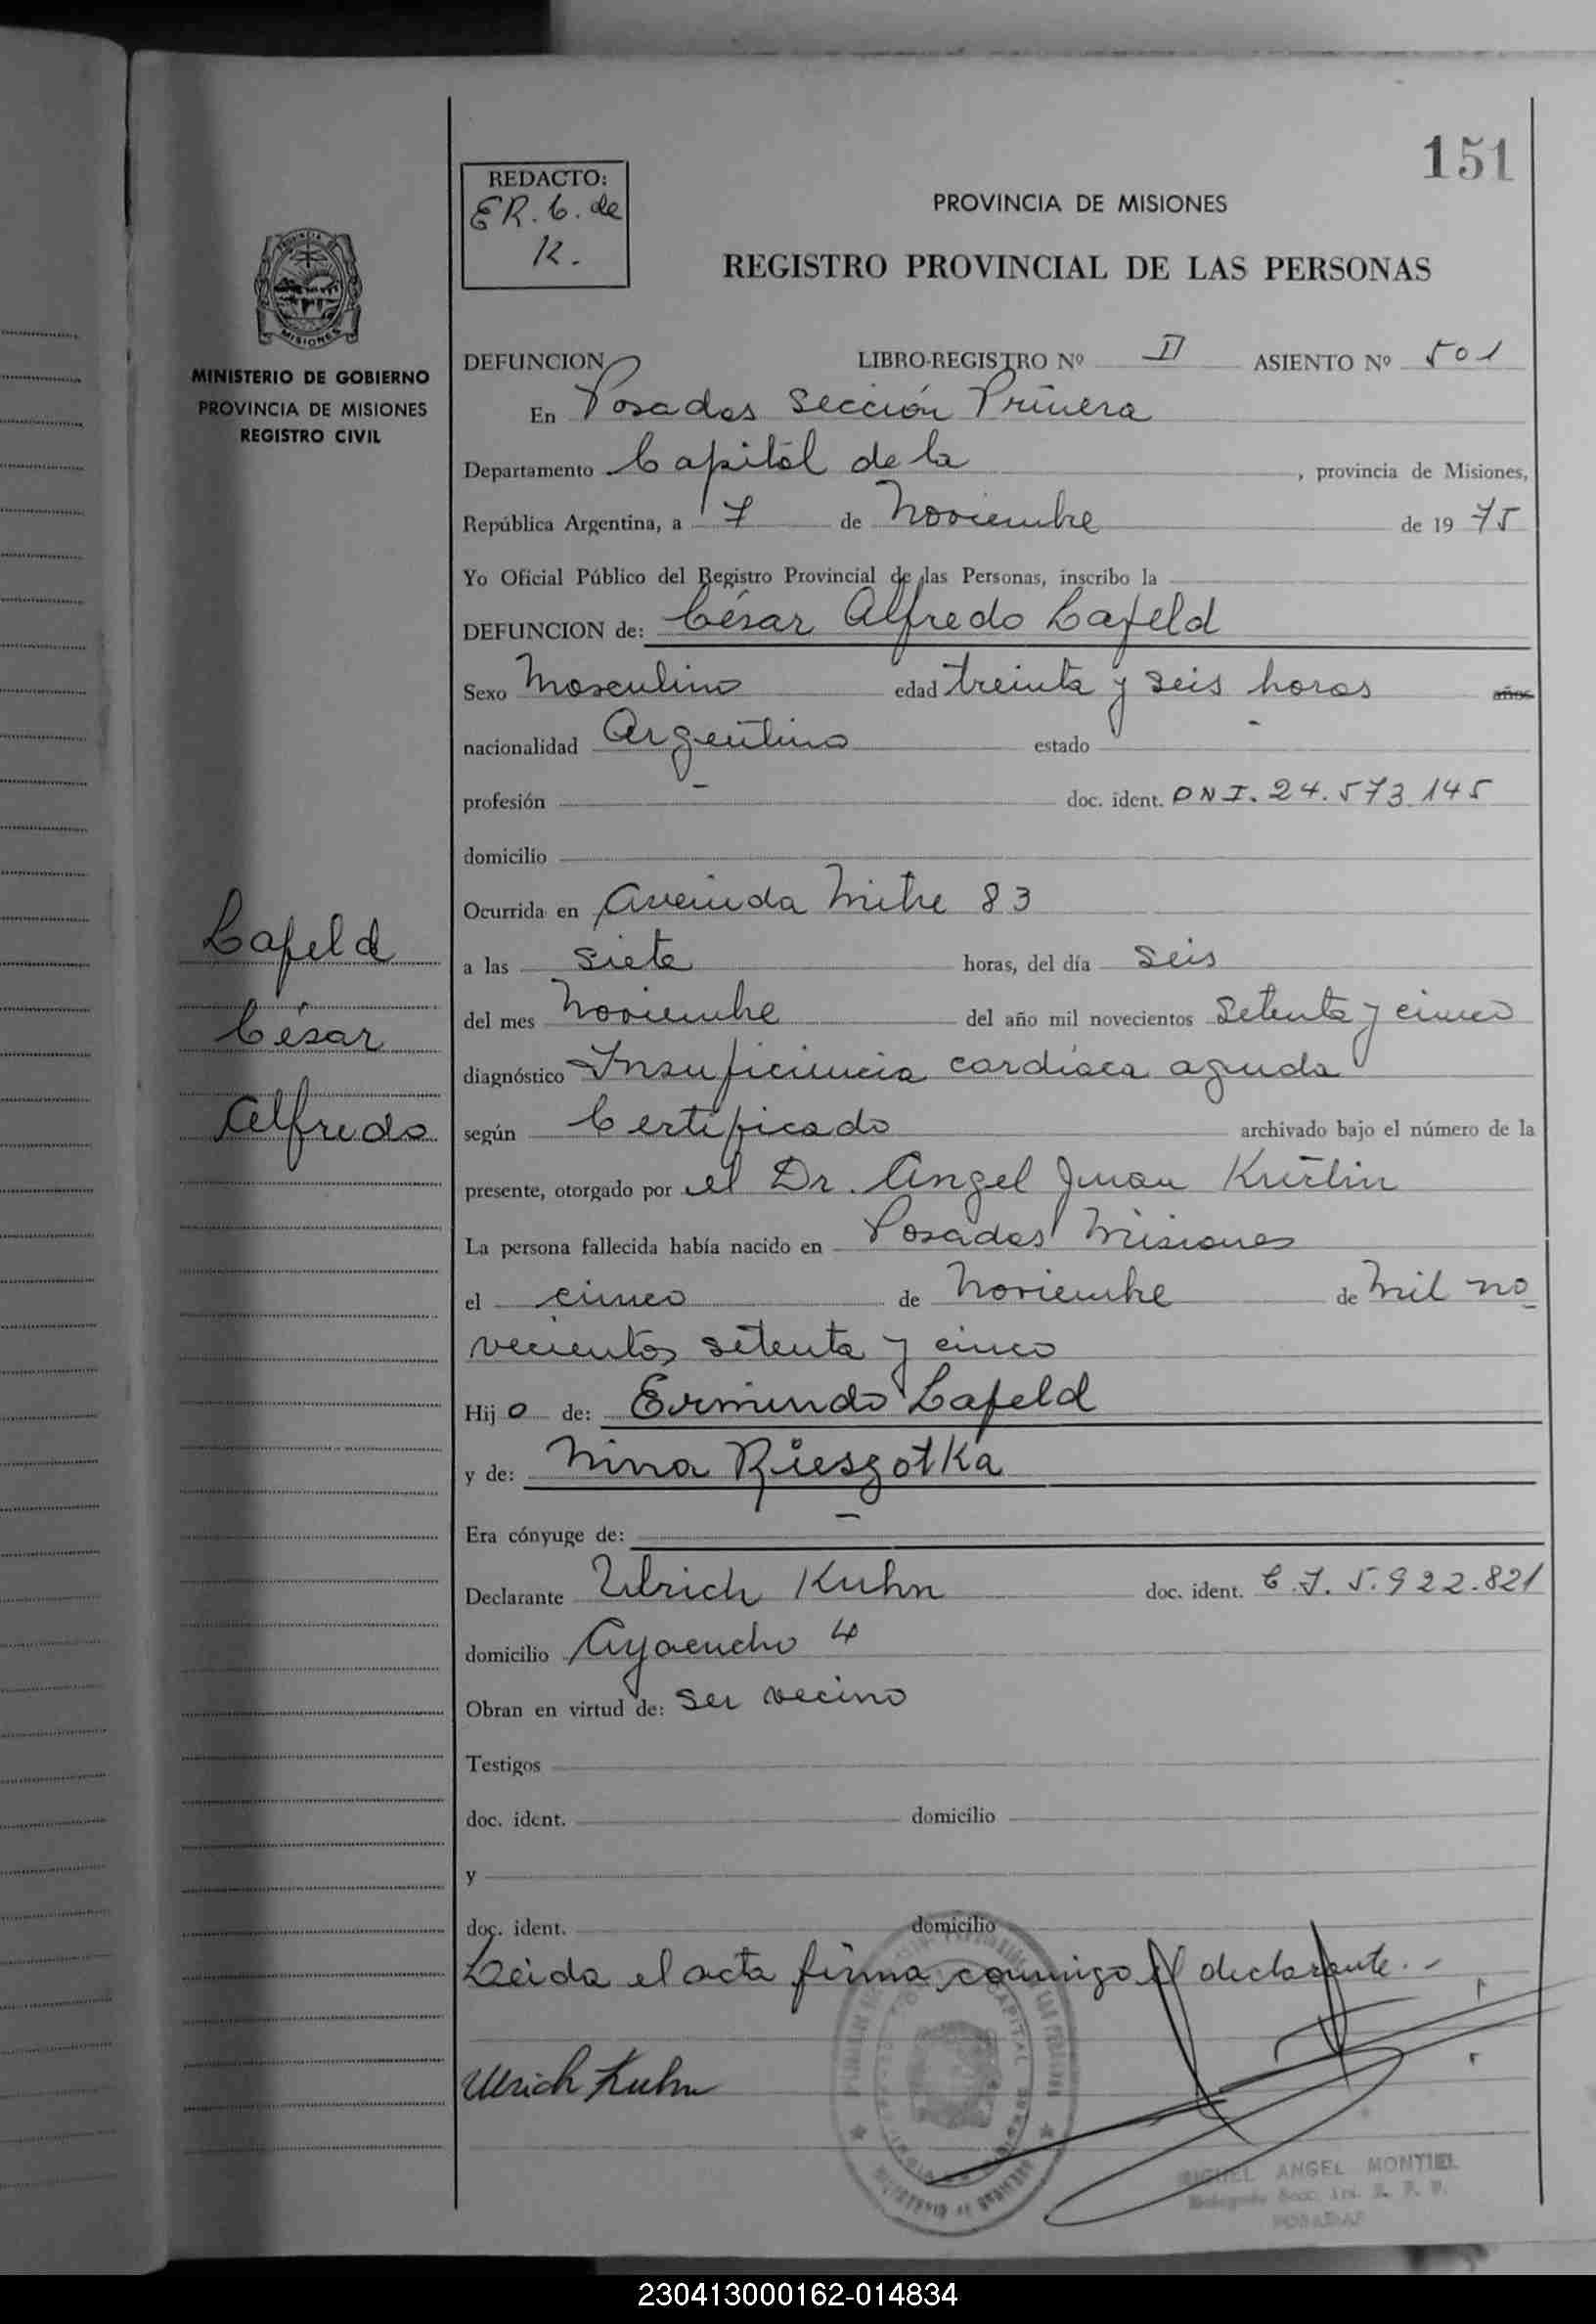 151
REDACTO:
ER. C. de
K.
PROVINCIA DE MISIONES
REGISTRO PROVINCIAL DE LAS PERSONAS
PROVINCIA DE
MISIONES
MINISTERIO DE GOBIERNO
PROVINCIA DE MISIONES
REGISTRO CIVIL
DEFUNCION LIBRO-REGISTRO Nº II ASIENTO Nº 501
En Posadas Sección Primera
Departamento Capital de la , provincia de Misiones,
República Argentina, a 7 de Noviembre de 19 75
Yo Oficial Público del Registro Provincial de las Personas, inscribo la
DEFUNCION de: César Alfredo Lafeld
Sexo Masculino edad treinta y seis horas años
nacionalidad Argentino estado -
profesión - doc. ident. DNI. 24.573.145
domicilio
Ocurrida en Avenida Mitre 83
a las siete horas, del día seis
del mes Noviembre del año mil novecientos setenta y cinco
diagnóstico Insuficiencia cardíaca aguda
según Certificado archivado bajo el número de la
presente, otorgado por el Dr. Angel Juan
La persona fallecida había nacido en Posadas Misiones
el cinco de Noviembre de mil no
vecientos setenta y cinco
Hijo de: Ermindo Lafeld
y de: Nina Riesgotka
Era cónyuge de: -
Declarante Ulrich Kuhn doc. ident. C.I. 5.922.821
domicilio Ayacucho 4
Obran en virtud de: ser vecino
Testigos
doc. ident. domicilio
y
doc. ident. domicilio
Leida el acta firma conmigo el declarante.-
Ulrich Kuhn
MIGUEL ANGEL MONTIEL
POSADAS
Lafeld
César
Alfredo
230413000162-014834